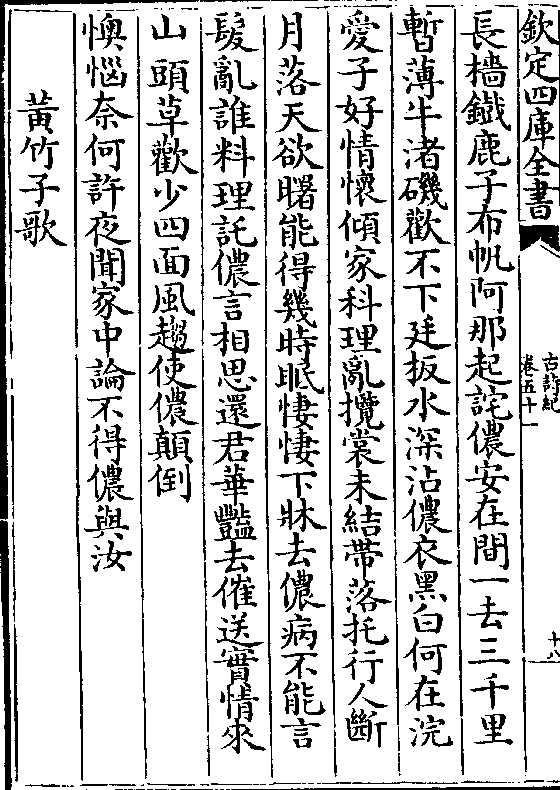 欽定四庫全書
古詩紀
卷五十一
十八
長檣鐵鹿子布帆阿那起詫儂安在間一去三千里
暫薄牛渚磯歡不下廷板水深沾儂衣黑白何在浣
愛子好情懷傾家料理亂攬裳未結帶落托行人斷
月落天欲曙能得幾時眠悽悽下牀去儂病不能言
髮亂誰料理託儂言相思還君華豔去催送實情來
山頭草歡少四面風趨使儂顛倒
懊惱奈何許夜聞家中論不得儂與汝
黃竹子歌